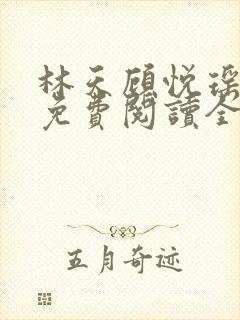 林天顾悦瑶
免費閱讀全
五月奇迹